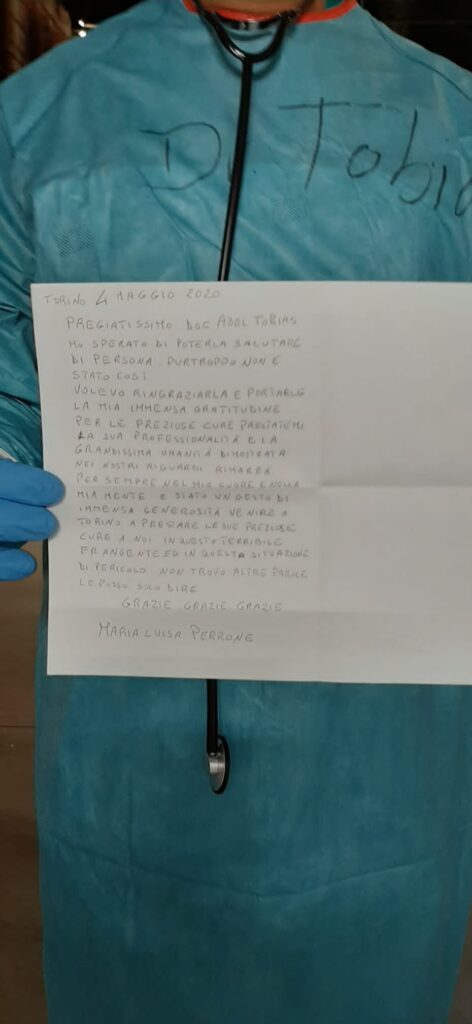 Dr Tobia
TORINO 4 MAGGIO 2020
PREGIATISSIMO DOC ABEL TOBIAS
HO SPERATO DI POTERLA SALUTARE
DI PERSONA PURTROPPO NON E
STATO COSI
VOLEVO RINGRAZIARLA E PORTARLE
LA MIA IMMENSA GRATITUDINE
PER LE PREZIOSE CURE PRESTATEMI
LA SUA PROFESSIONALITÀ E LA
GRANDISSIMA UMANITÀ DIMOSTRATA
NEI NOSTRI RIGUARDI RIMARRÀ
PER SEMPRE NEL MIO CUORE E NELLA
MIA MENTE. E STATO UN GESTO DI
IMMENSA GENEROSITÀ VENIRE A
TORINO A PRESTARE LE SUE PREZIOSE
CURE A NOI IN QUESTO TERRIBILE
FRANGENTE, ED IN QUESTA SITUAZIONE
DI PERICOLO NON TROVO ALTRE PAROLE
LE POSSO SOLO DIRE
GRAZIE GRAZIE GRAZIE
MARIA LUISA PERRONE